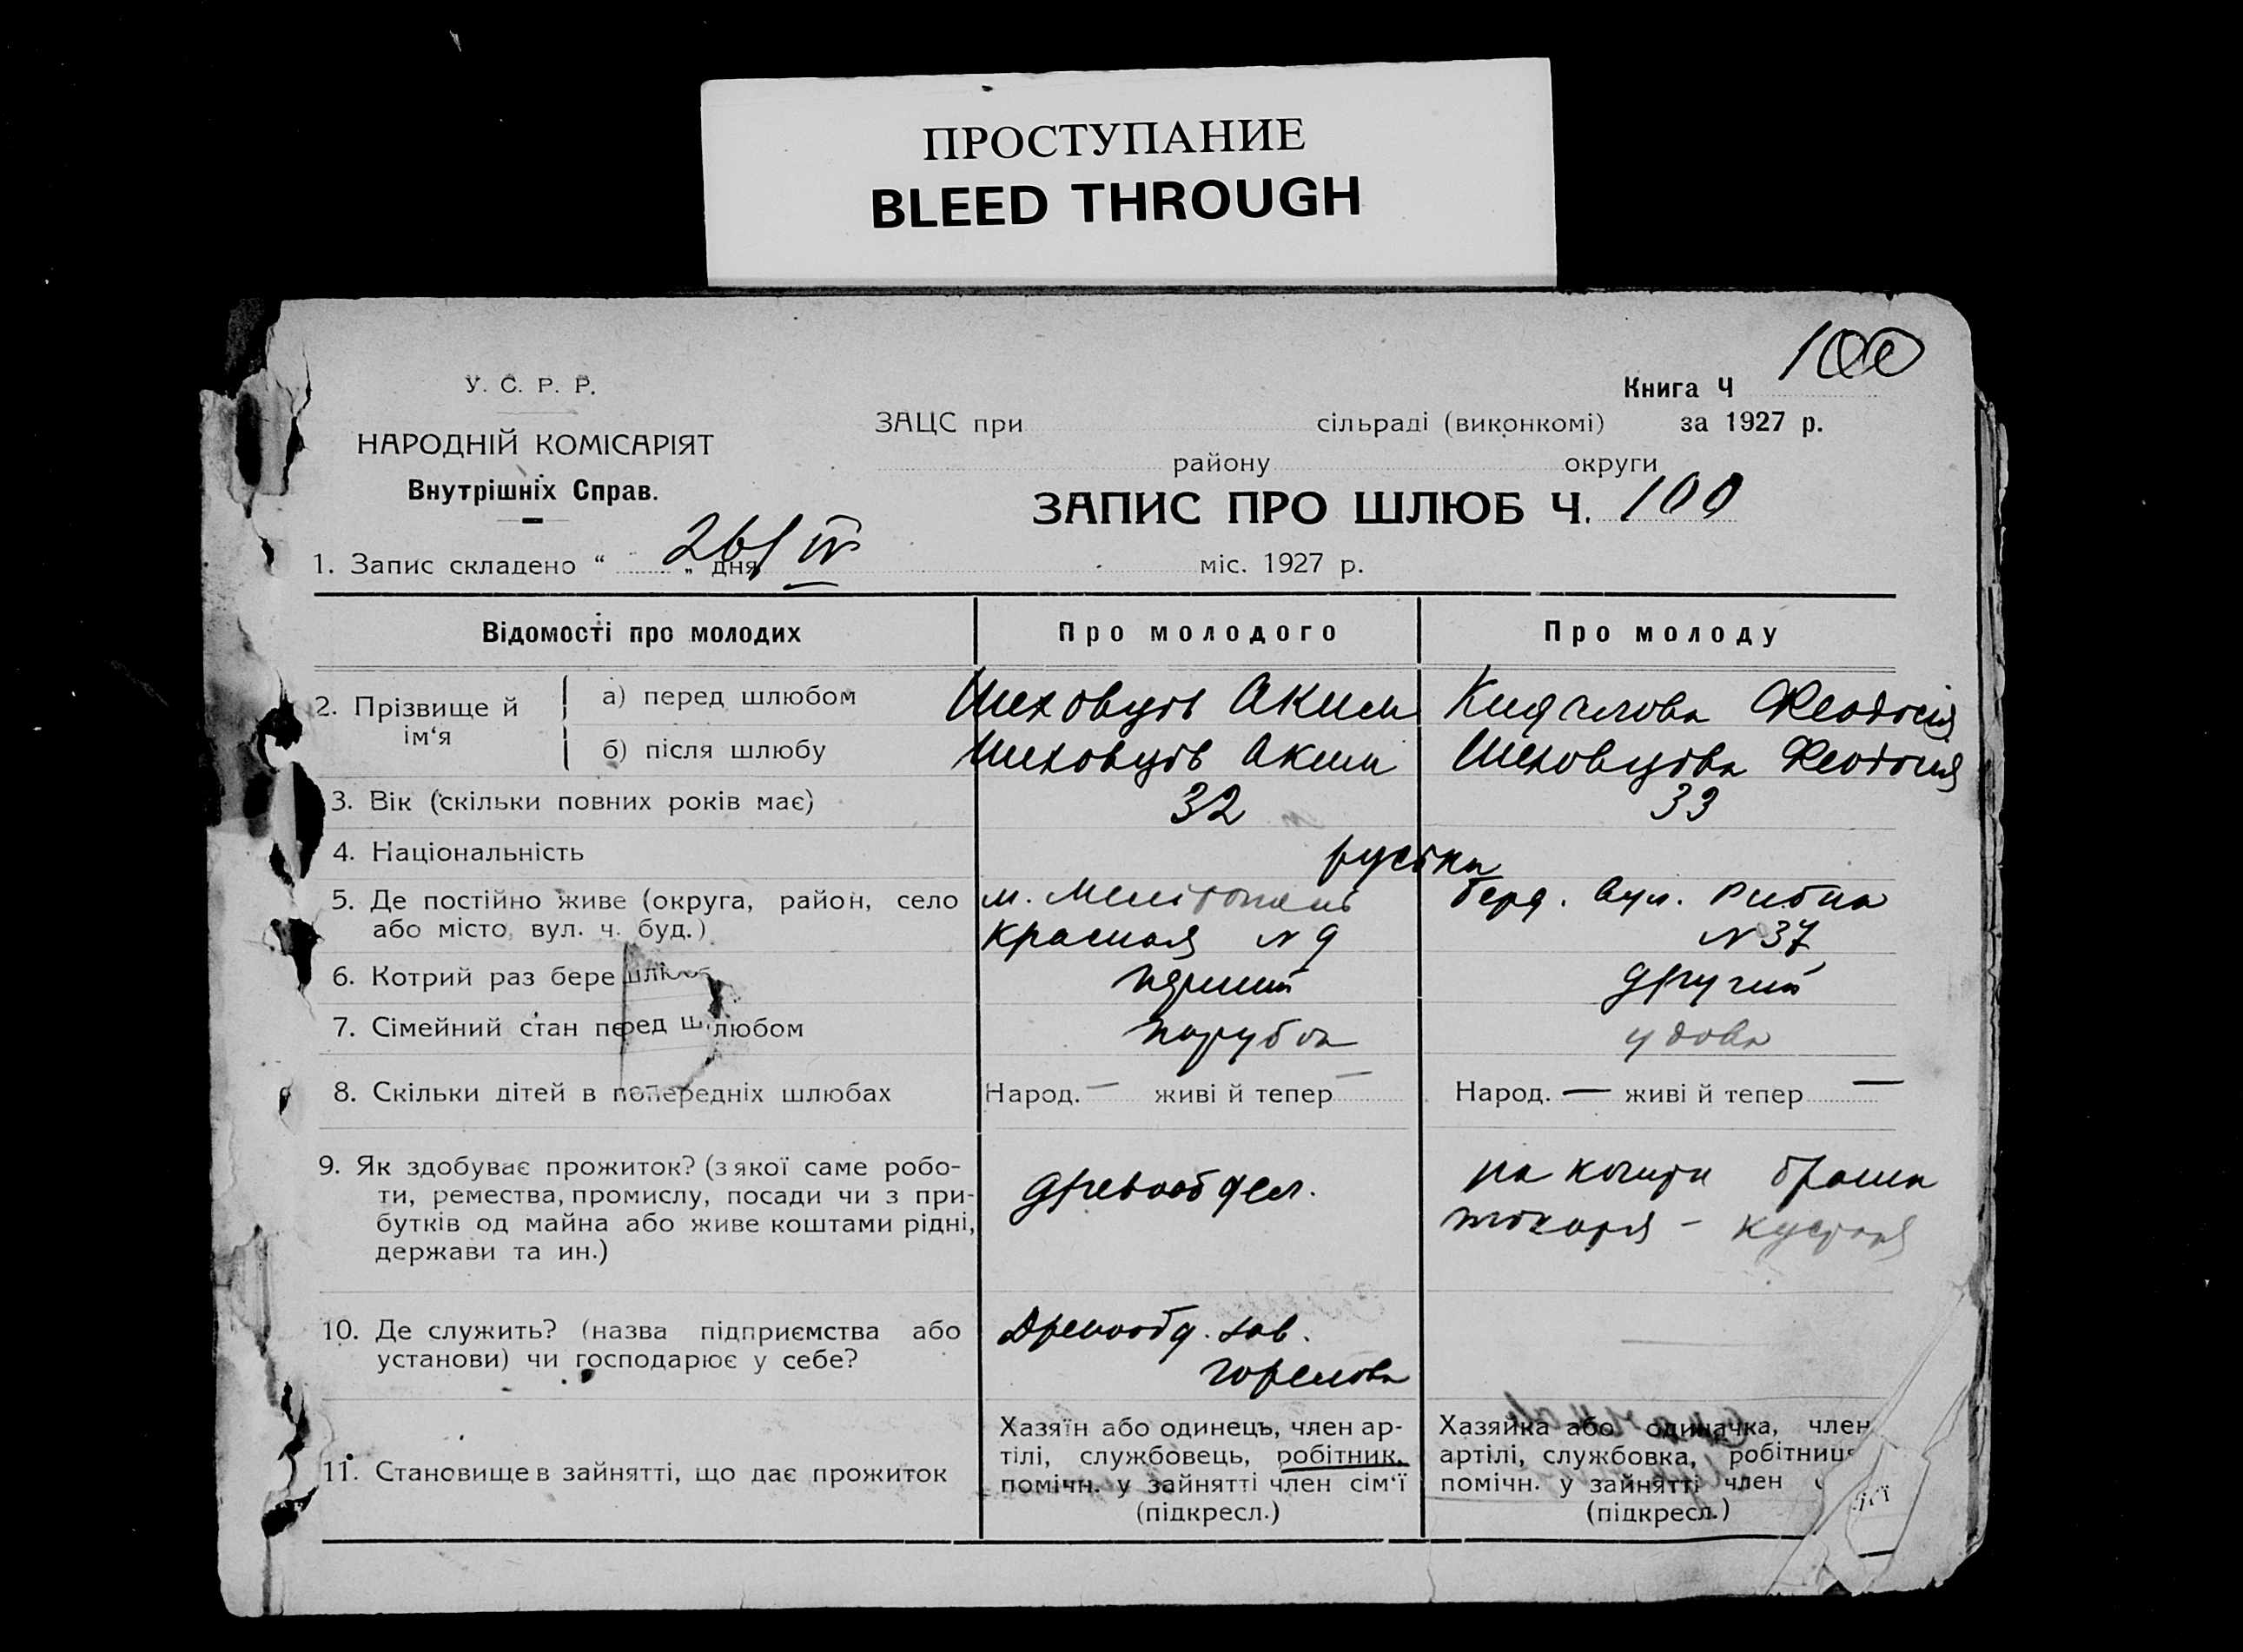 ПРОСТУПАНИЕ
BLEED THROUGH
100
У. С. Р. Р.
Книга Ч
ЗАЦС при сільраді (виконкомі) за 1927 р.
НАРОДНІЙ КОМІСАРІЯТ
району округи
Внутрішніх Справ.
ЗАПИС ПРО ШЛЮБ Ч. 100
1. Запис складено “ 26/IV „ дня міс. 1927 р.
Відомості про молодих Про молодого Про молоду
2. Прізвище й ім‘я
а) перед шлюбом Шеховцов Аким Феодосія
б) після шлюбу Шеховцов Аким Шеховцова Феодосія
3. Вік (скільки повних років має) 32 33
4. Національність
5. Де постійно живе (округа, район, село м. Мелітополь Берд. вул. Рибна
або місто, вул. ч. буд.) Красная № 9 № 37
6. Котрий раз бере шлюб перший другий
7. Сімейний стан перед шлюбом парубок удова
8. Скільки дітей в попередніх шлюбах Народ. — живі й тепер — Народ. — живі й тепер —
9. Як здобуває прожиток? (з якої саме робо-
ти, ремества, промислу, посади чи з при- древообдел. на кошти брата
бутків од майна або живе коштами рідні, токаря - кустаря
держави та ин.)
10. Де служить? (назва підприємства або Древообд. зав.
установи) чи господарює у себе? Горелова
Хазяїн або одинець, член ар- Хазяйка або одиначка, член
тілі, службовець, робітник, артілі, службовка, робітниця
11. Становище в зайнятті, що дає прожиток помічн. у зайнятті член сім‘ї помічн. у зайнятті член
(підкресл.) (підкресл.)